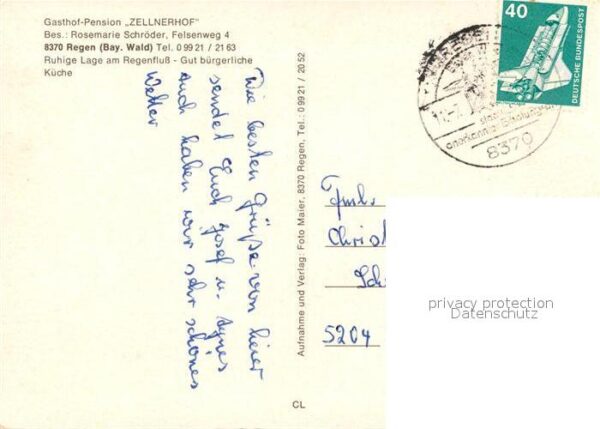 Gasthof-Pension „ZELLNERHOF"
Bes.: Rosemarie Schröder, Felsenweg 4
8370 Regen (Bay. Wald) Tel. 0 99 21 / 21 63
Ruhige Lage am Regenfluß - Gut bürgerliche
Küche
Die besten Grüße von hier
sendet Euch Josef u. Agnes
auch haben wir sehr schönes
Wetter
Aufnahme und Verlag: Foto Maier, 8370 Regen, Tel.: 0 99 21 / 20 52
CL
40
DEUTSCHE BUNDESPOST
staatl.
anerkannter Erholungsort
8370
Christ
Sch
5204
privacy protection
Datenschutz